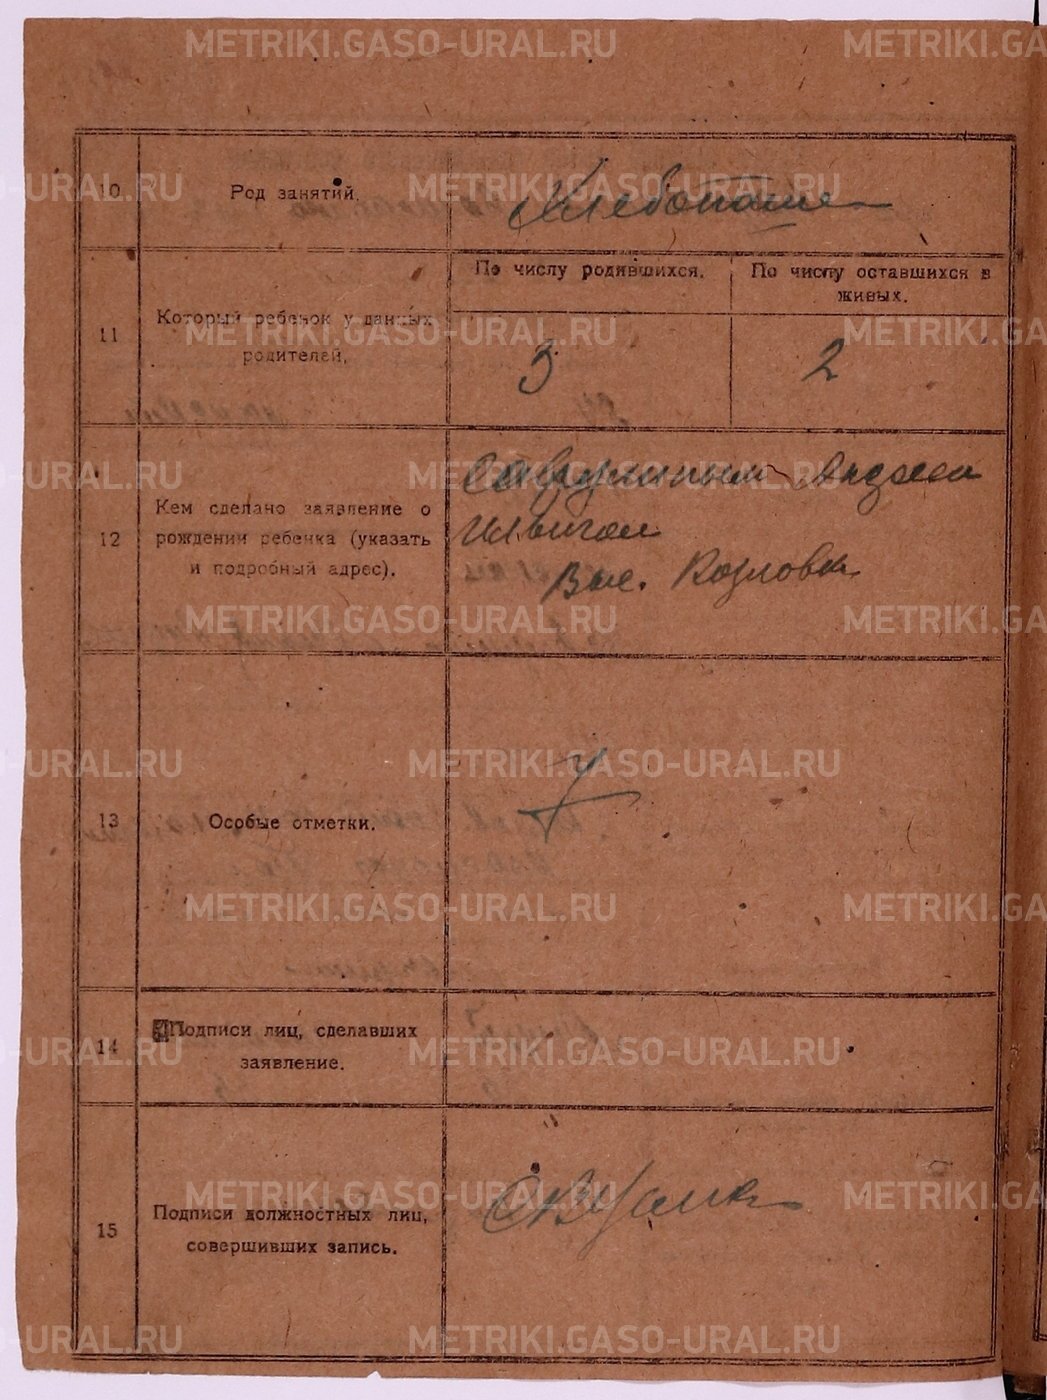 METRIKI.GASO-URAL.RU
10
Род занятий.
Хлебопаше
11
Который ребенок у данных
родителей.
По числу родившихся.
По числу оставшихся в
живых.
3
2
12
Кем сделано заявление о
рождении ребенка (указать
и подробный адрес).
Ильичом
Выс. Козловка
13
Особые отметки.
14
Подписи лиц, сделавших
заявление.
15
Подписи должностных лиц,
совершивших запись.